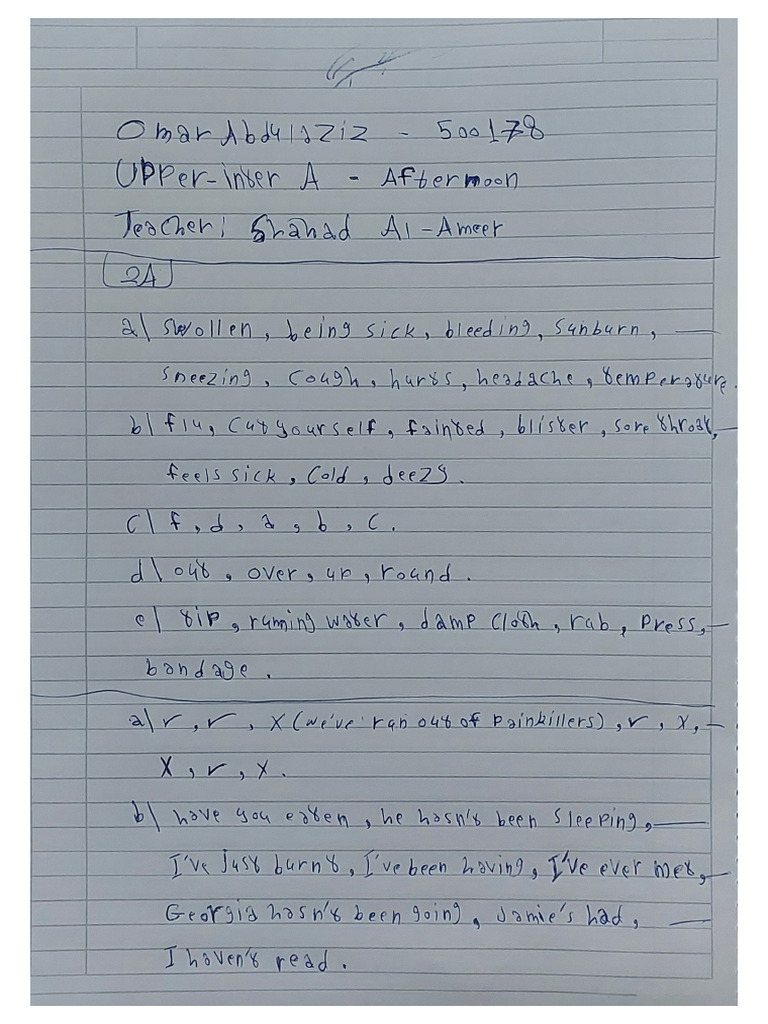 Omar Abdulaziz - 500178
Upper-inter A - Afternoon
Teacher: Shahad Al-Ameer
2A
a\ swollen, being sick, bleeding, sunburn,
sneezing, cough, hurts, headache, temperature.
b\ flu, cut yourself, fainted, blister, sore throat,
feels sick, cold, deezy.
c\ f, d, a, b, c.
d\ out, over, up, round.
e\ tip, running water, damp cloth, rub, press,
bandage.
a\ ✓, ✓, X (we've ran out of painkillers), ✓, X,
X, ✓, X.
b\ have you eaten, he hasn't been sleeping,
I've just burnt, I've been having, I've ever met,
Georgia hasn't been going, Jamie's had,
I haven't read.